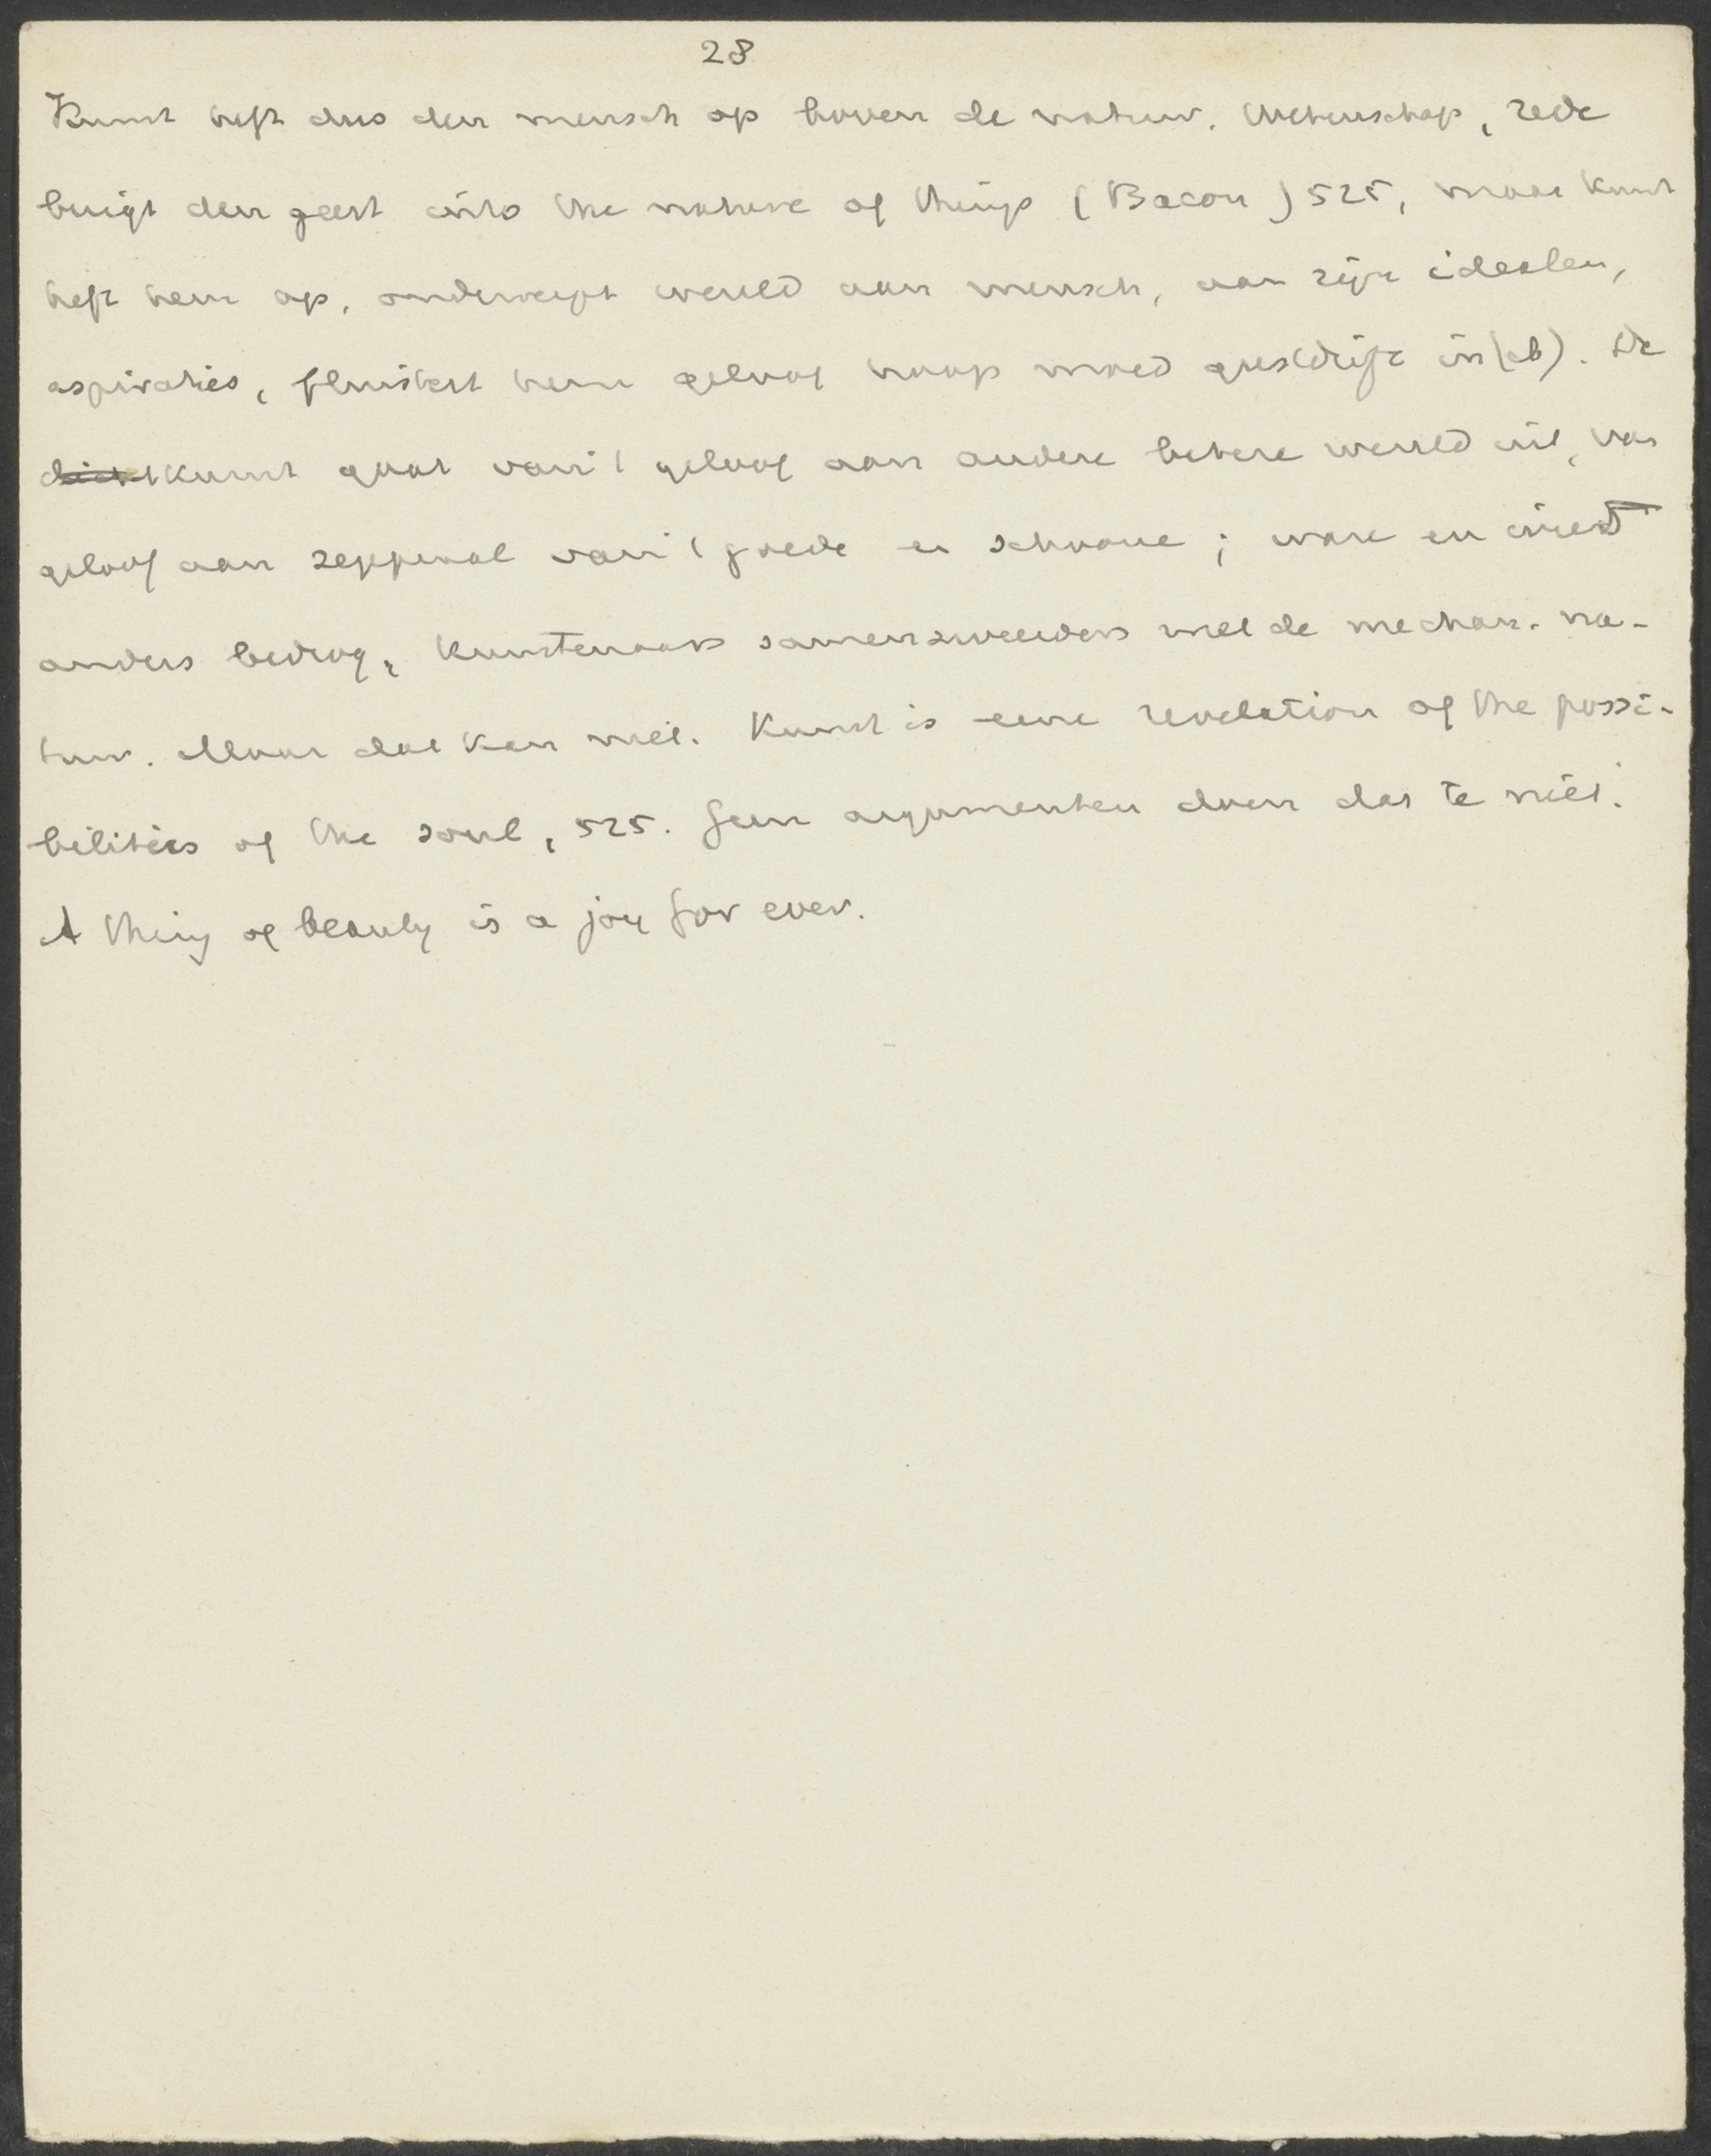 28
Kunst heft dus den mensch op boven de natuur. Wetenschap, rede
buigt den geest into the nature of things (Bacon) 525, maar kunst
heft hem op, onderwerpt wereld aan mensch, aan zijn idealen,
aspiraties, fluistert hem geloof hoop moed geestdrift in (ib). De
dichtkunst gaat van 't geloof aan andere betere wereld uit, van
geloof aan zegepraal van 't goede en schoone; ware en is
anders bedrog, kunstenaars samenzweerders met de mechan. na-
tuur. Maar dat kan niet. Kunst is eene revelation of the possi-
bilities of the soul, 525. Geen argumenten doen dat te niet.
A thing of beauty is a joy for ever.